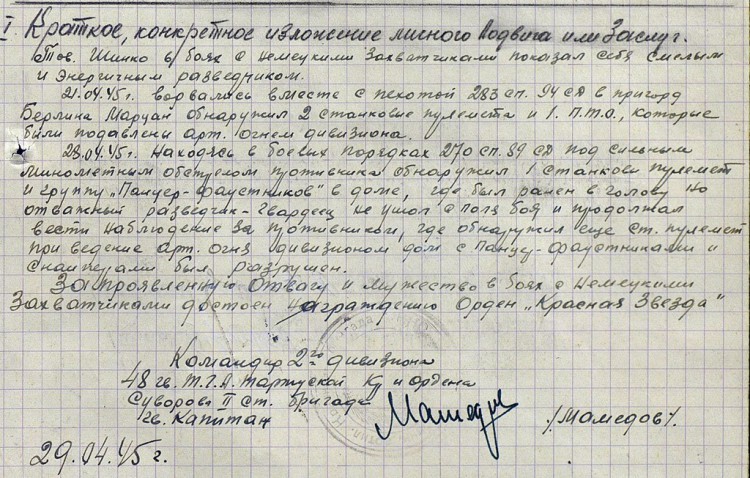 I Краткое, конкретное изложение личного Подвига или Заслуг.
Тов. Шинко в боях с Немецкими Захватчиками показал себя смелым
и Энергичным разведчиком.
21.04.45г. ворвались вместе с пехотой 283 сп. 94 сд в пригород
Берлина Марцан обнаружил 2 станковые пулемета и 1. П.Т.О., которые
были подавлены арт. огнем дивизиона.
28.04.45г. Находясь в боевых порядках 270 сп. 89 сд под сильным
минометным обстрелом противника обнаружил 1 станковы пулемет
и группу „Панцер-фаустников" в доме, где был ранен в голову. Но
отважный разведчик-Гвардеец не ушол с поля боя и продолжал
вести наблюдение за противником, где обнаружил еще ст. пулемет
при ведение арт. огня дивизионом дом с Панцер-фаустниками и
снайперами был разрушен.
За проявленную отвагу и мужество в боях с Немецкими
Захватчиками достоен Награждению Орден „Красная Звезда"
Командир 2го дивизиона
48 гв. Т.Г.А. Тартуской Кр и ордена
Суворова II ст. бригады
гв. Капитан
/Мамедов/.
29.04.45г.